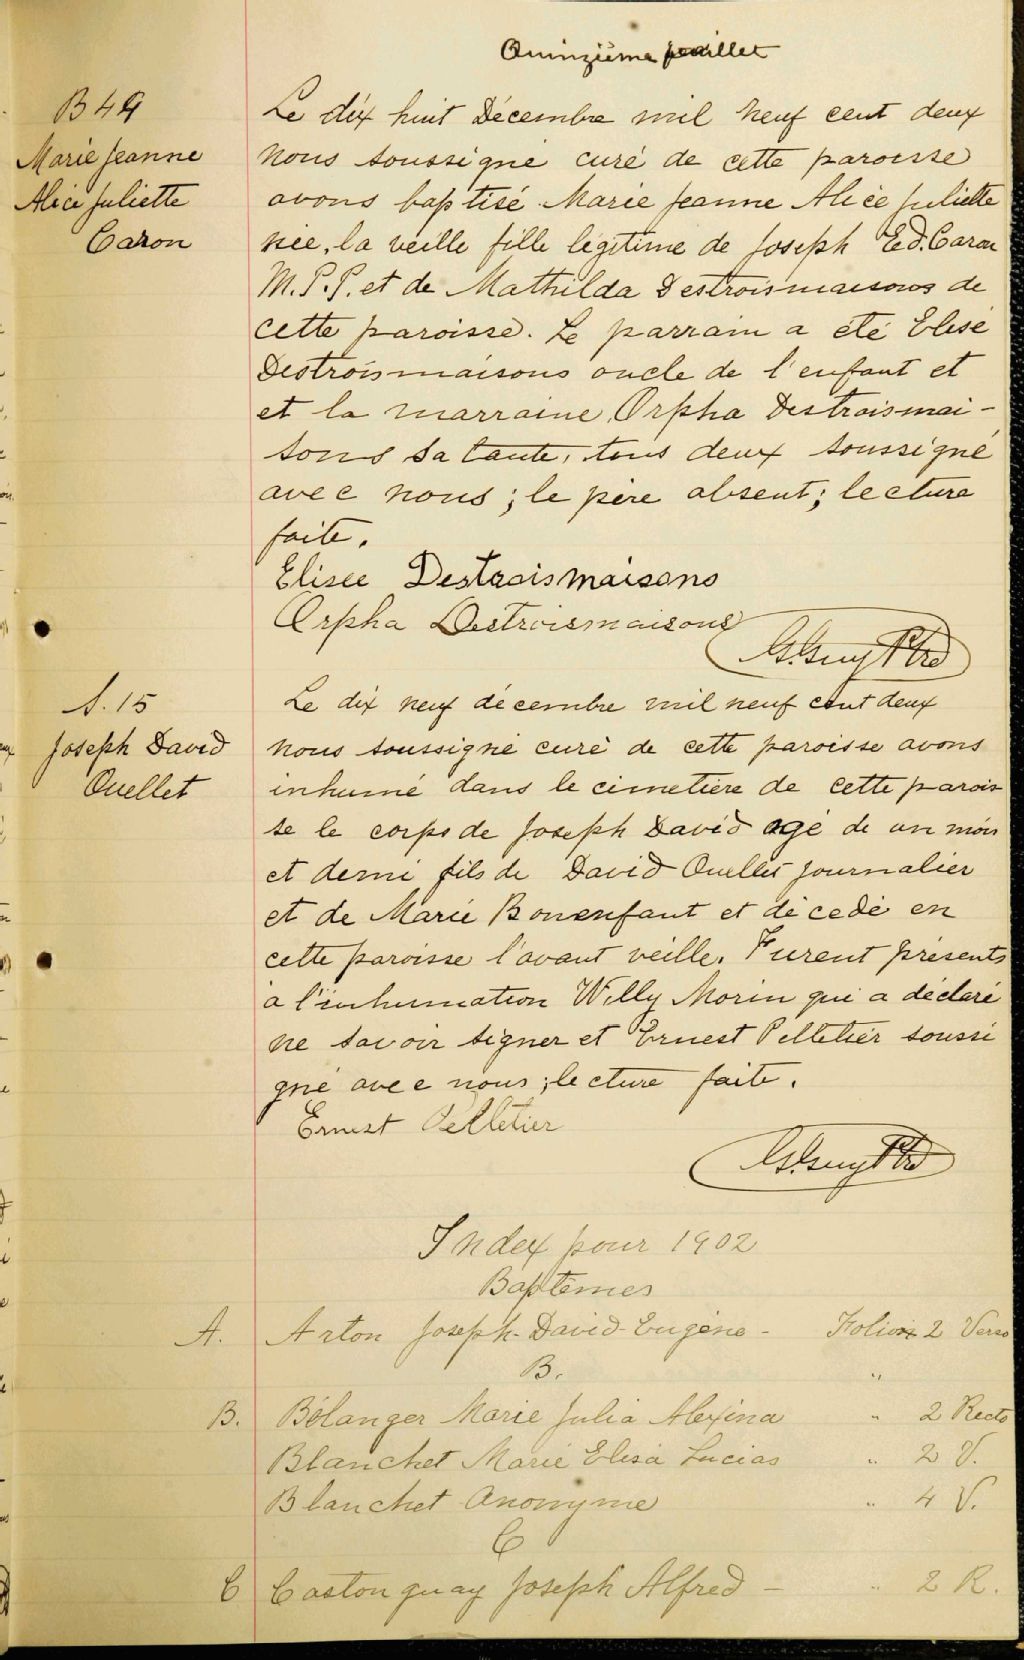 Quinzième feuillet
B 49
Marie Jeanne
Alice Juliette
Caron
Le dix huit Décembre mil neuf cent deux
nous soussigné curé de cette paroisse
avons baptisé Marie Jeanne Alice Juliette
née la veille fille légitime de Joseph Ed. Caron
M.P.P. et de Mathilda Destroismaisons de
cette paroisse. Le parrain a été Elisé
Destroismaisons oncle de l'enfant et
et la marraine Orpha Destroismai-
sons sa tante, tous deux soussigné
avec nous ; le père absent ; lecture
faite.
Elisee Destroismaisons
Orpha Destroismaisons
G. Guy Ptre
S. 15
Joseph David
Ouellet
Le dix neuf décembre mil neuf cent deux
nous soussigné curé de cette paroisse avons
inhumé dans le cimetière de cette parois
se le corps de Joseph David agé de un mois
et demi fils de David Ouellet journalier
et de Marie Bonenfant et décédé en
cette paroisse l'avant veille. Furent présents
à l'inhumation Willy Morin qui a déclaré
ne savoir signer et Ernest Pelletier soussi
gné avec nous ; lecture faite.
Ernest Pelletier
G. Guy Ptre
Index pour 1902
Baptêmes
A. Arton Joseph-David-Eugène - Folio 2 Verso
B. "
B. Bélanger Marie Julia Alexina " 2 Recto
Blanchet Marie Elisa Lucias " 2 V.
Blanchet Anonyme " 4 V.
C
C Castonguay Joseph Alfred - " 2 R.